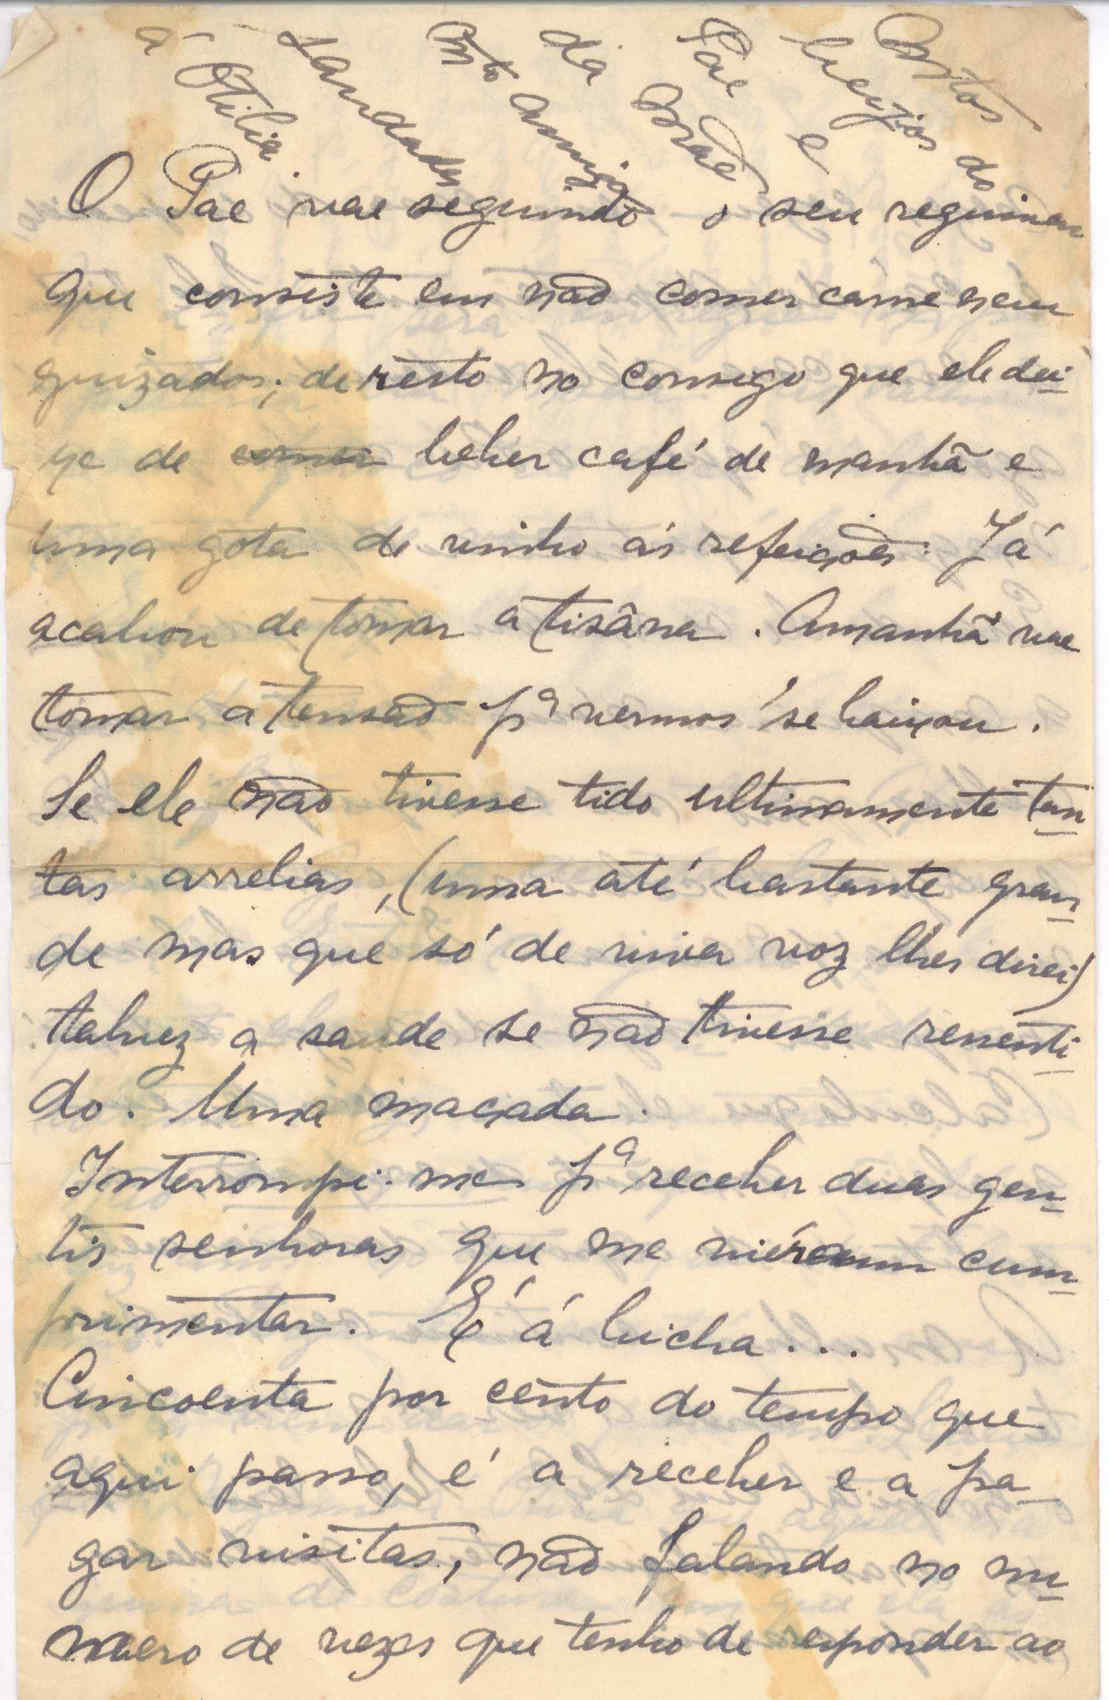 Muitos
beijos do
Pae e
da Mãe
mto amiga
Saudades
á Otilia.
O Pae vae seguindo o seu reguimen
que consiste em não comer carne nem
guizados; de resto no consego que ele dei-
xe de comer beber café de manhã e
uma gota de vinho ás refeições. Já
acabou de tomar a tisâna. Amanhã vae
tomar a tensão pª vermos se baixou.
Se ele não tivesse tido ultimamente tan-
tas arrelias, (uma até bastante gran-
de mas que só de viva voz lhes direi)
talvez a saude se não tivesse resenti-
do. Uma maçada.
Interrompi-me pª receber duas gen-
tis senhoras que me viéram cum-
primentar. É á bicha...
Cincoenta por cento do tempo que
aqui passo, é a receber e a pa-
gar visitas, não falando no nu-
mero de vezes que tenho de responder ao